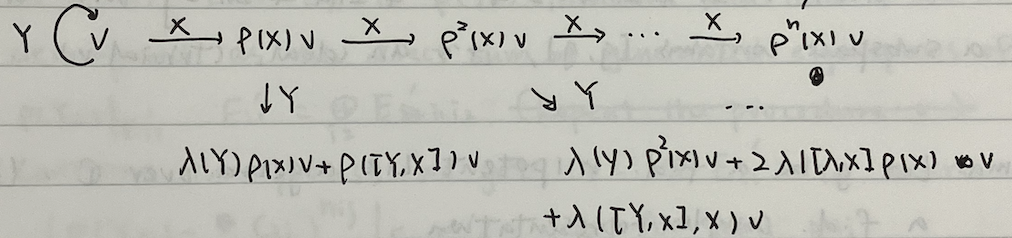 Y ↻ v —X→ ρ(x) v —X→ ρ²(x) v —X→ ... —X→ ρⁿ(x) v
↓Y ↘ Y ...
λ(Y) ρ(x) v + ρ([Y,X]) v λ(y) ρ²(x) v + 2 λ([λ,x] ρ(x) v
+ λ([Y,x],x) v